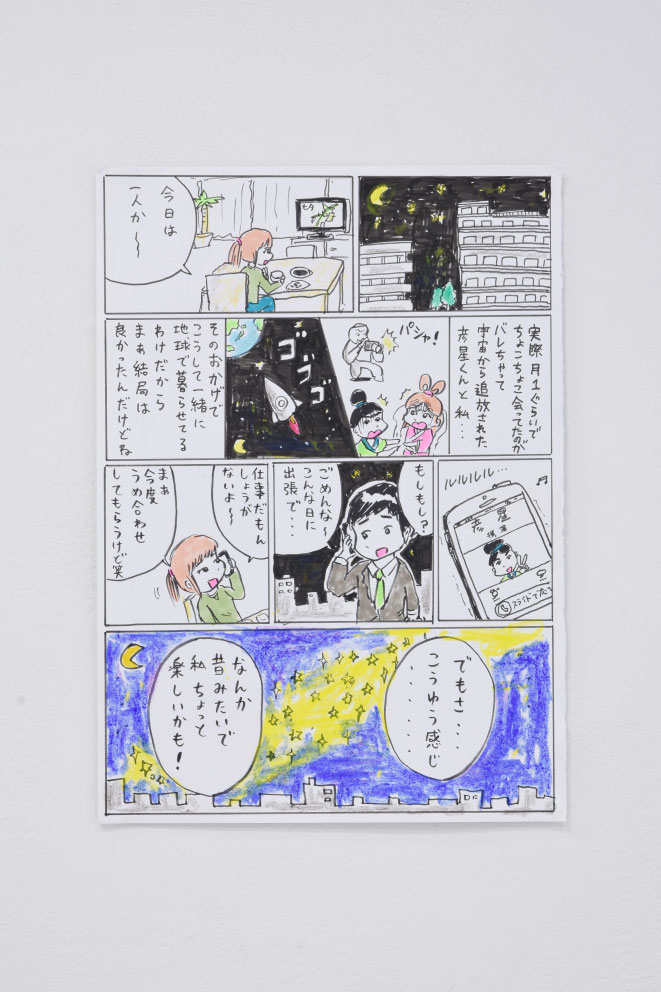 今日は
一人か〜
七夕
実際月1ぐらいで
ちょこちょこ会ってたのが
バレちゃって
宇宙から追放された
彦星くんと私・・・
パシャ!
ゴゴゴゴ・・・
そのおかげで
こうして一緒に
地球で暮らせてる
わけだから
まぁ結局は
良かったんだけどね
ルルルル・・・
♪
彦星
携帯
スライドで応
もしもし?
ごめんな〜
こんな日に
出張で・・・
仕事だもん
しょうが
ないよ〜
まぁ
今度
うめ合わせ
してもらうけど笑
でもさ・・・
こうゆう感じ
・・・・・・・
なんか
昔みたいで
私ちょっと
楽しいかも!